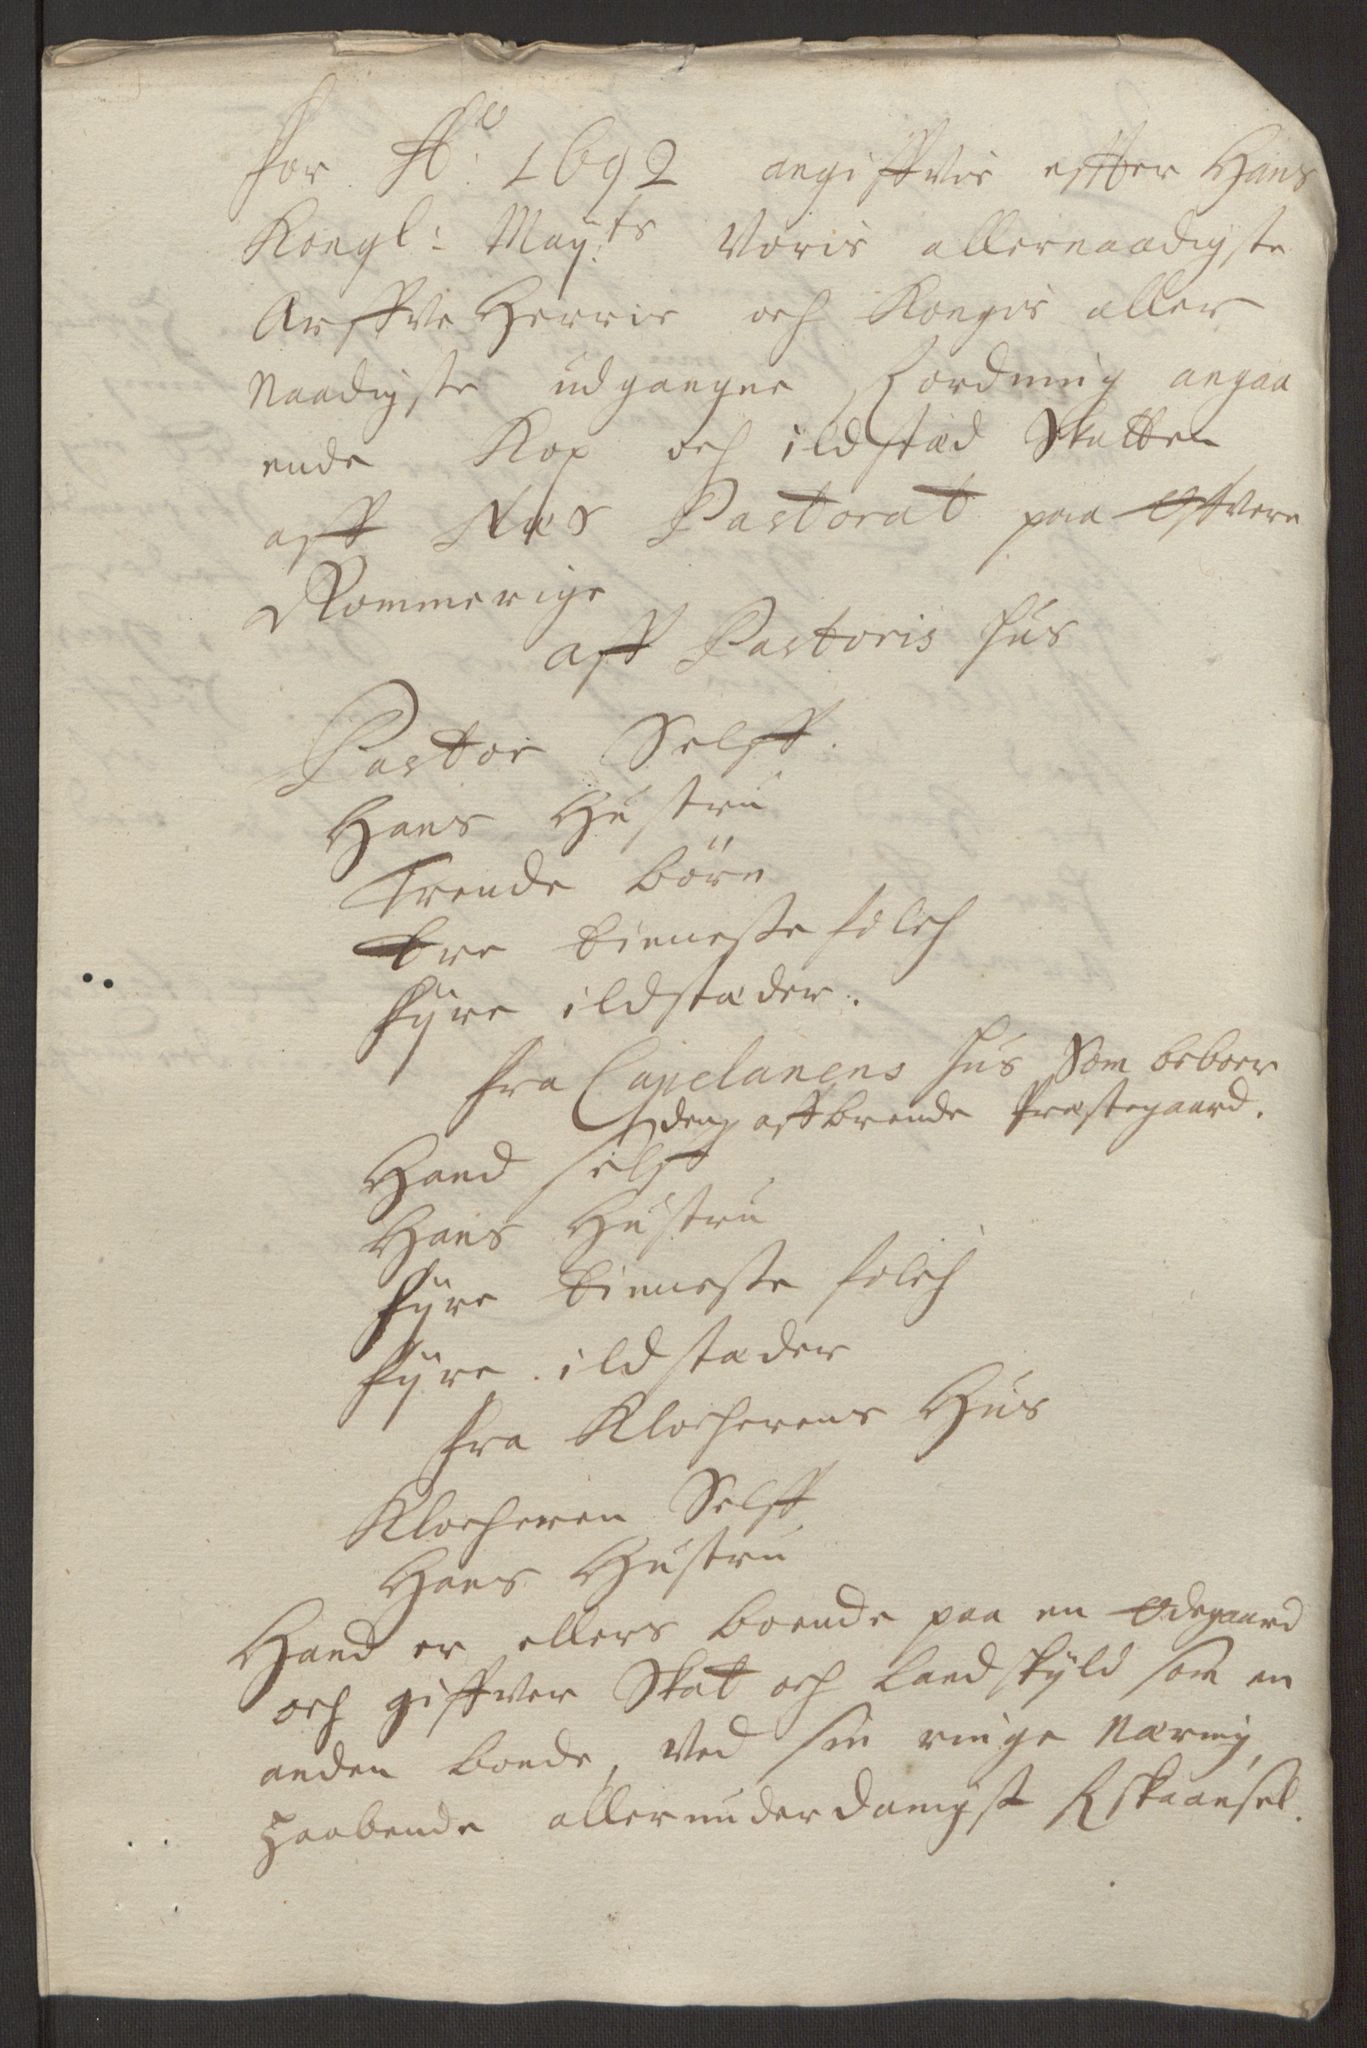 for Aº: 1692 angiffvis effter Hans
Kongl: Mayts: Voris allernaadigste
Arffve Herris och Kongis aller
Naadigste udgangne fordning angaa
ende Kop och ildstæd Skatten
aff Næs Pastorat paa Øffvere
Rommerige
aff Pastoris hus
Pastor Selff.
Hans Hustru
Trende börn
tre tieneste folch
fyre ildstæder.
fra Capelanens hus Som beboer
den affbrende Præstegaard.
Hand selff
Hans Hustru
fyre tieneste folch
fyre ildstæder
fra Klocherens Hus
Klocheren Selff
Hans Hustru
Hand er ellers boende paa en Ødegaard
och giffver Skat och landskyld som en
anden bonde, Ved sin ringe Næring,
haabende allerunderdanigst forskaansel.